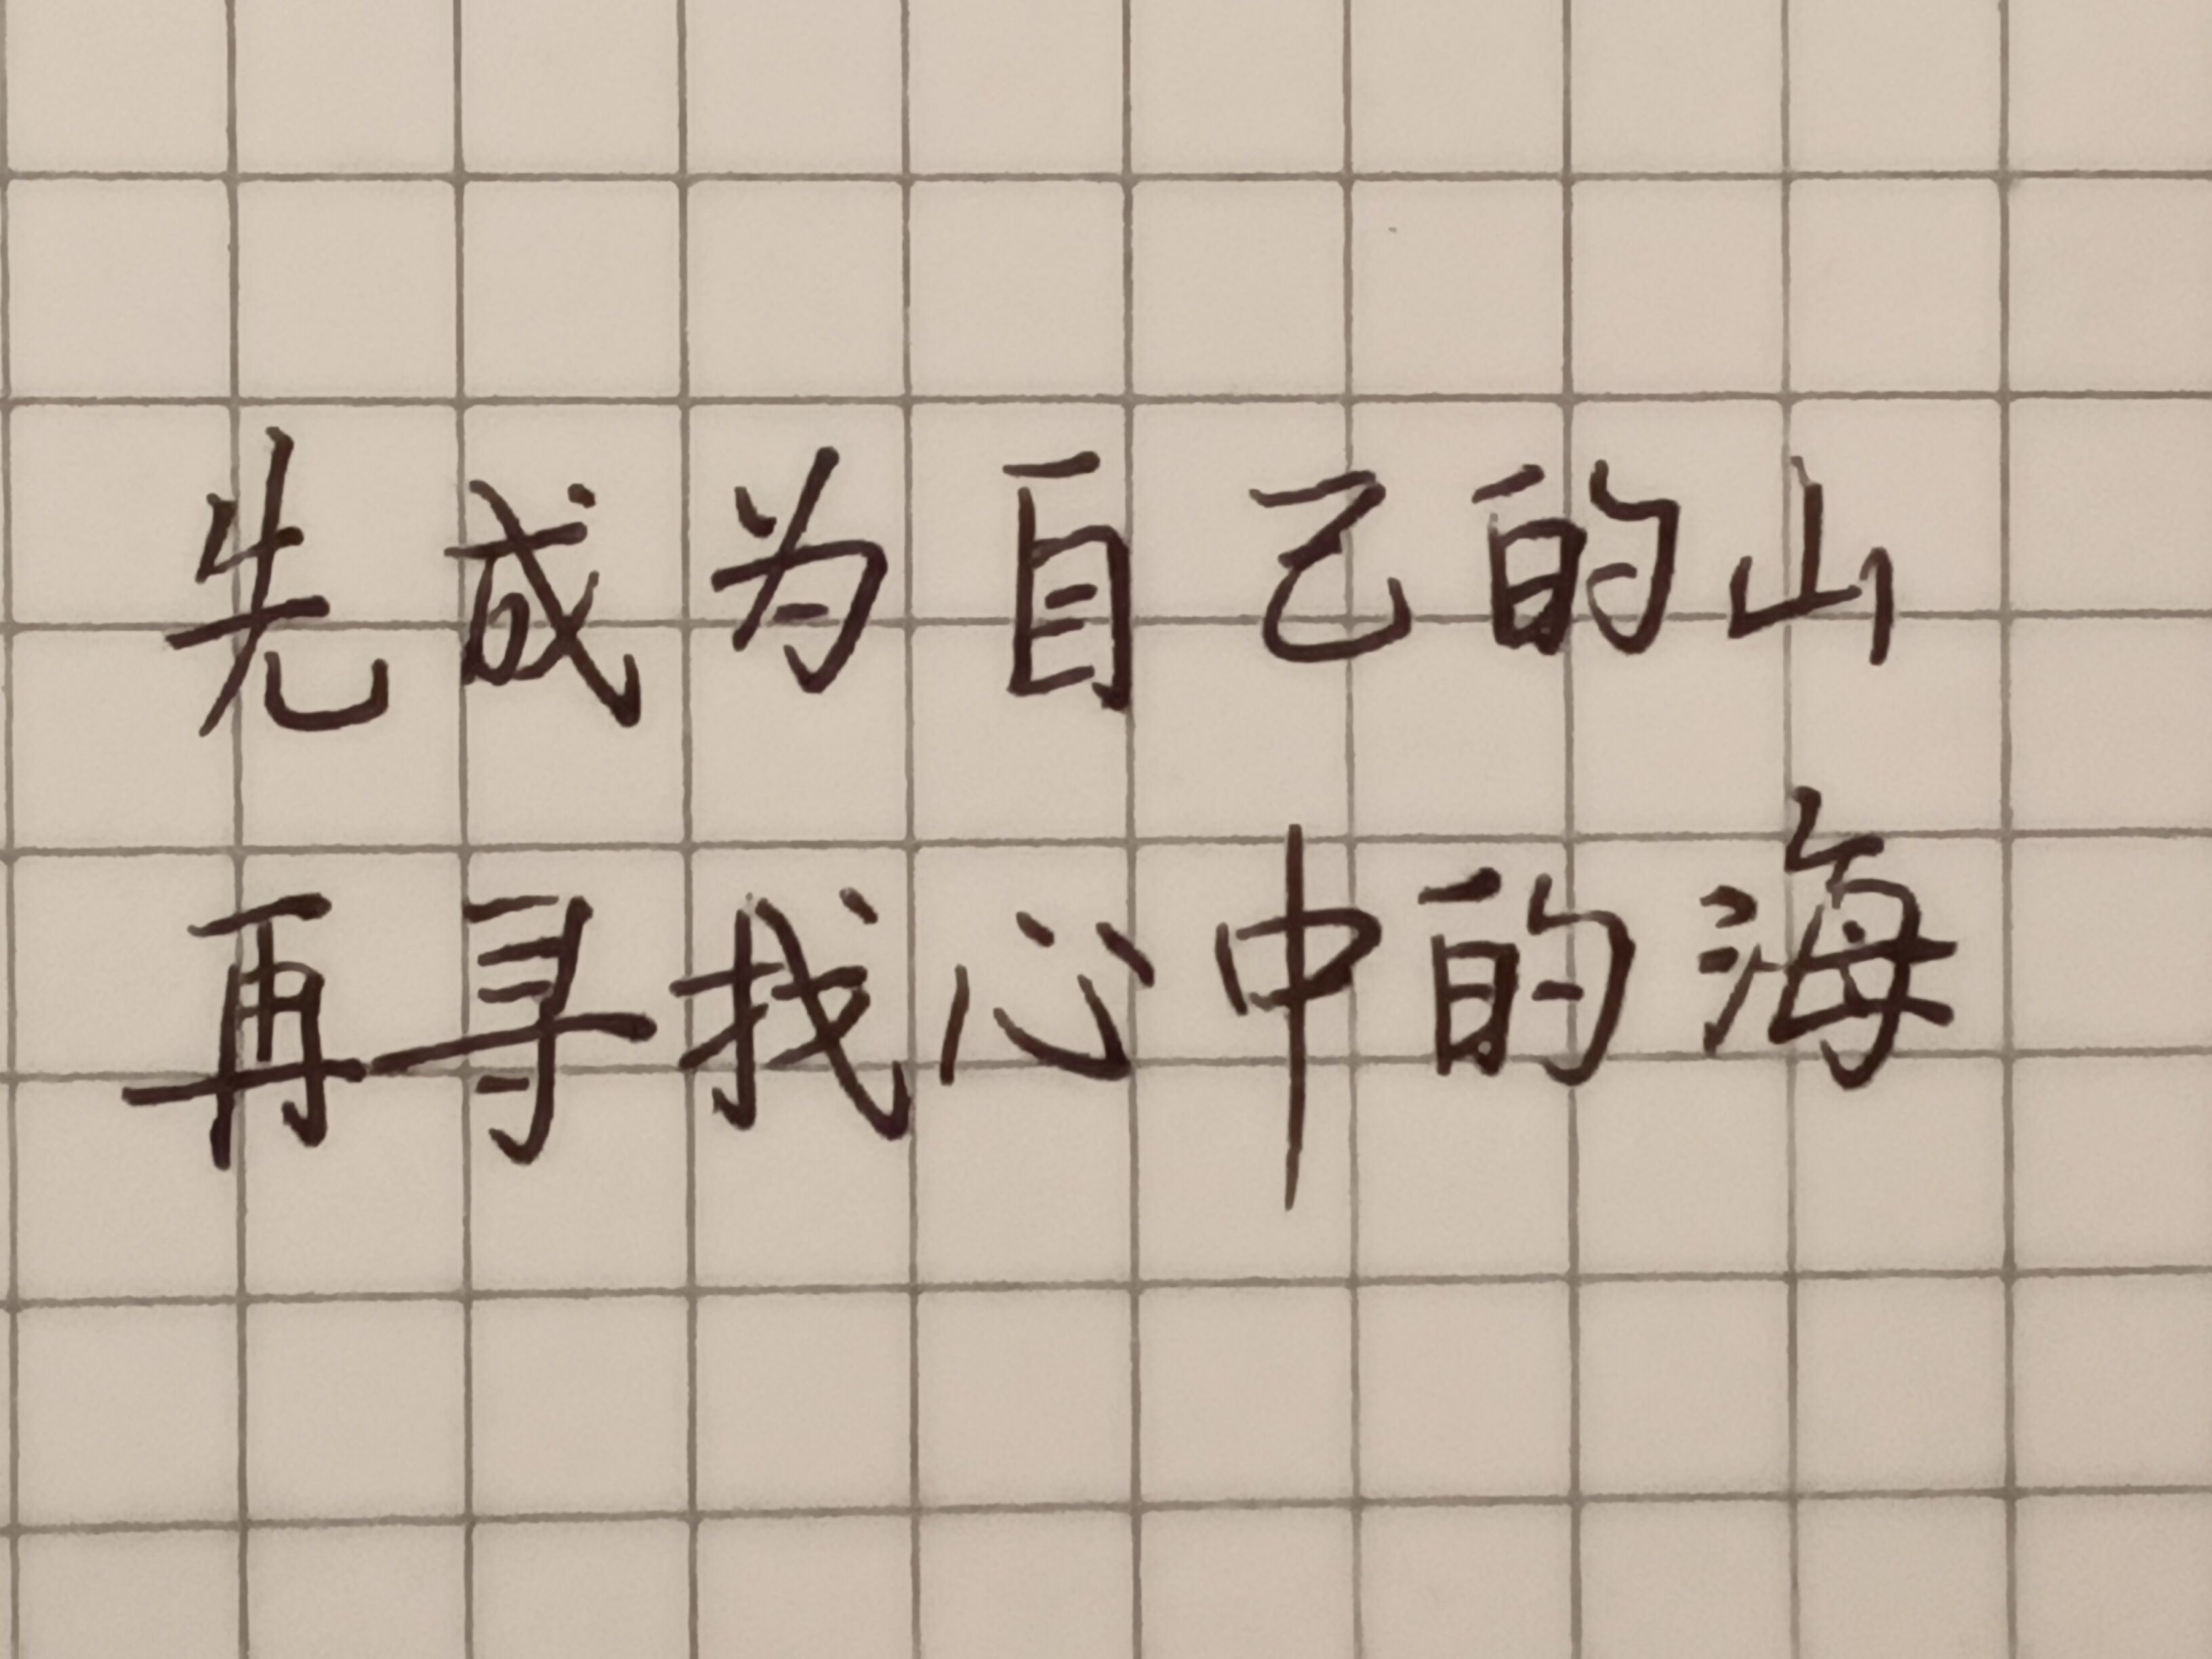 先成为自己的山
再寻找心中的海